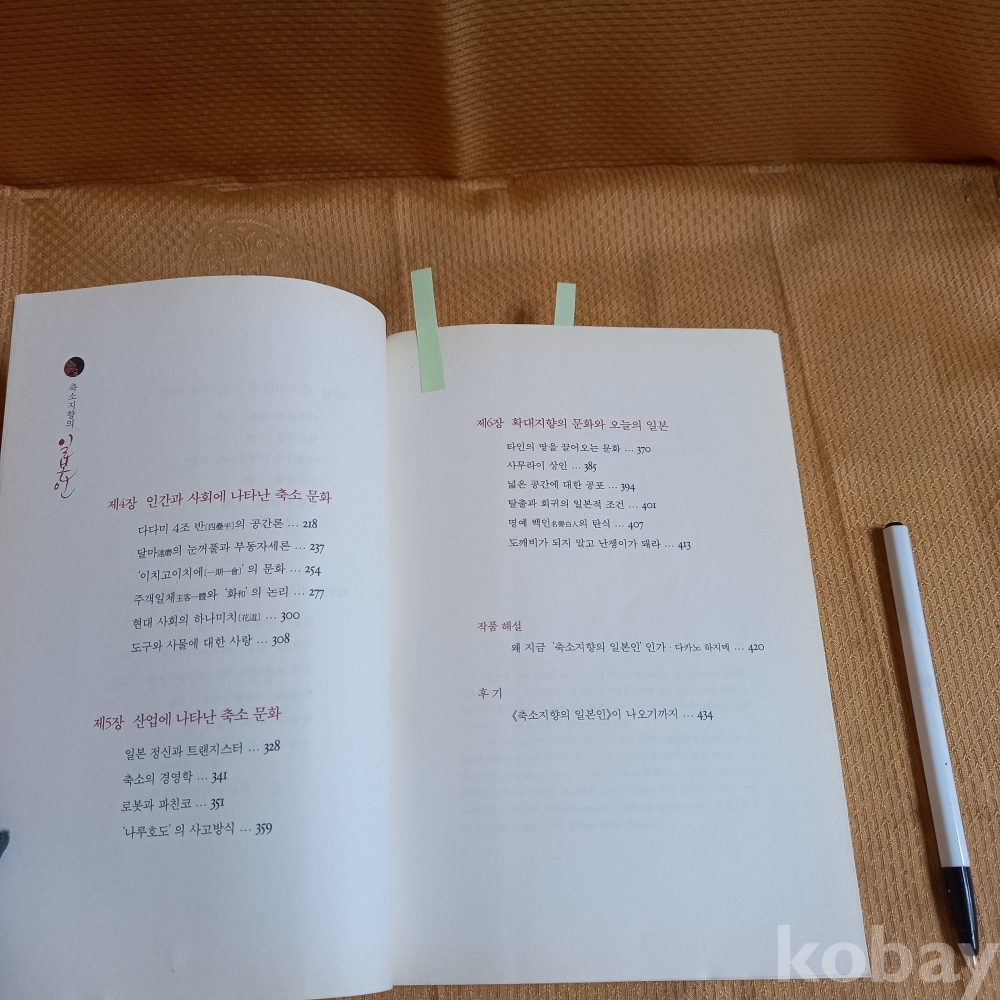 축소지향의
일본인
제4장 인간과 사회에 나타난 축소 문화
다다미 4조 반[四疊半]의 공간론 … 218
달마達磨의 눈꺼풀과 부동자세론 … 237
'이치고이치에[一期一會]'의 문화 … 254
주객일체主客一體와 '화和'의 논리 … 277
현대 사회의 하나미치[花道] … 300
도구와 사물에 대한 사랑 … 308
제5장 산업에 나타난 축소 문화
일본 정신과 트랜지스터 … 328
축소의 경영학 … 341
로봇과 파친코 … 351
'나루호도'의 사고방식 … 359
제6장 확대지향의 문화와 오늘의 일본
타인의 땅을 끌어오는 문화 … 370
사무라이 상인 … 385
넓은 공간에 대한 공포 … 394
탈출과 회귀의 일본적 조건 … 401
명예 백인名譽白人의 탄식 … 407
도깨비가 되지 말고 난쟁이가 돼라 … 413
작품 해설
왜 지금 '축소지향의 일본인'인가 · 다카노 하지메 … 420
후기
《축소지향의 일본인》이 나오기까지 … 434
kobay